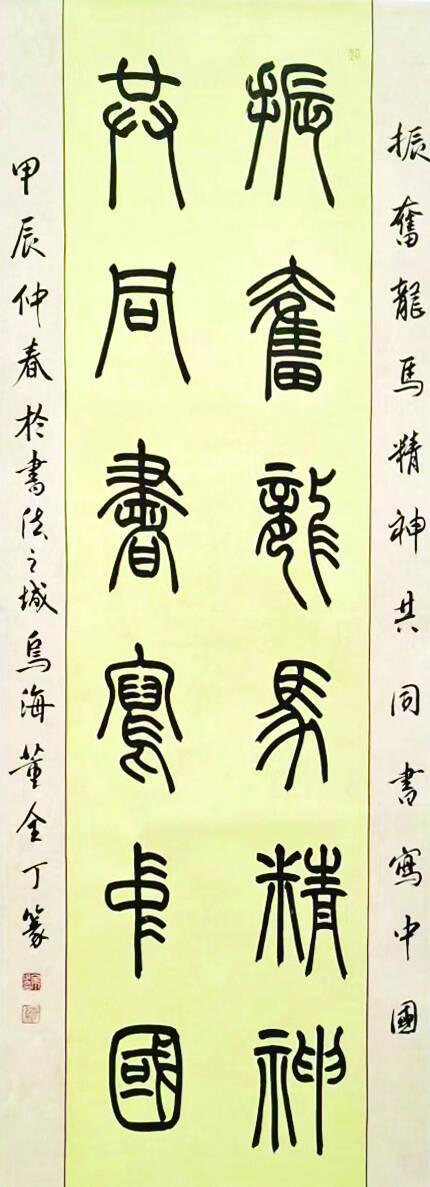 振奮龍馬精神共同書寫中國
振奮龍馬精神
共同書寫中國
甲辰仲春於書法之城烏海董全丁篆